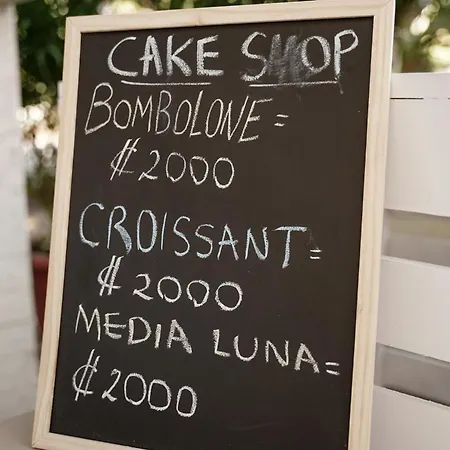 CAKE SHOP
BOMBOLONE =
₡2000
CROISSANT =
₡2000
MEDIA LUNA =
₡2000